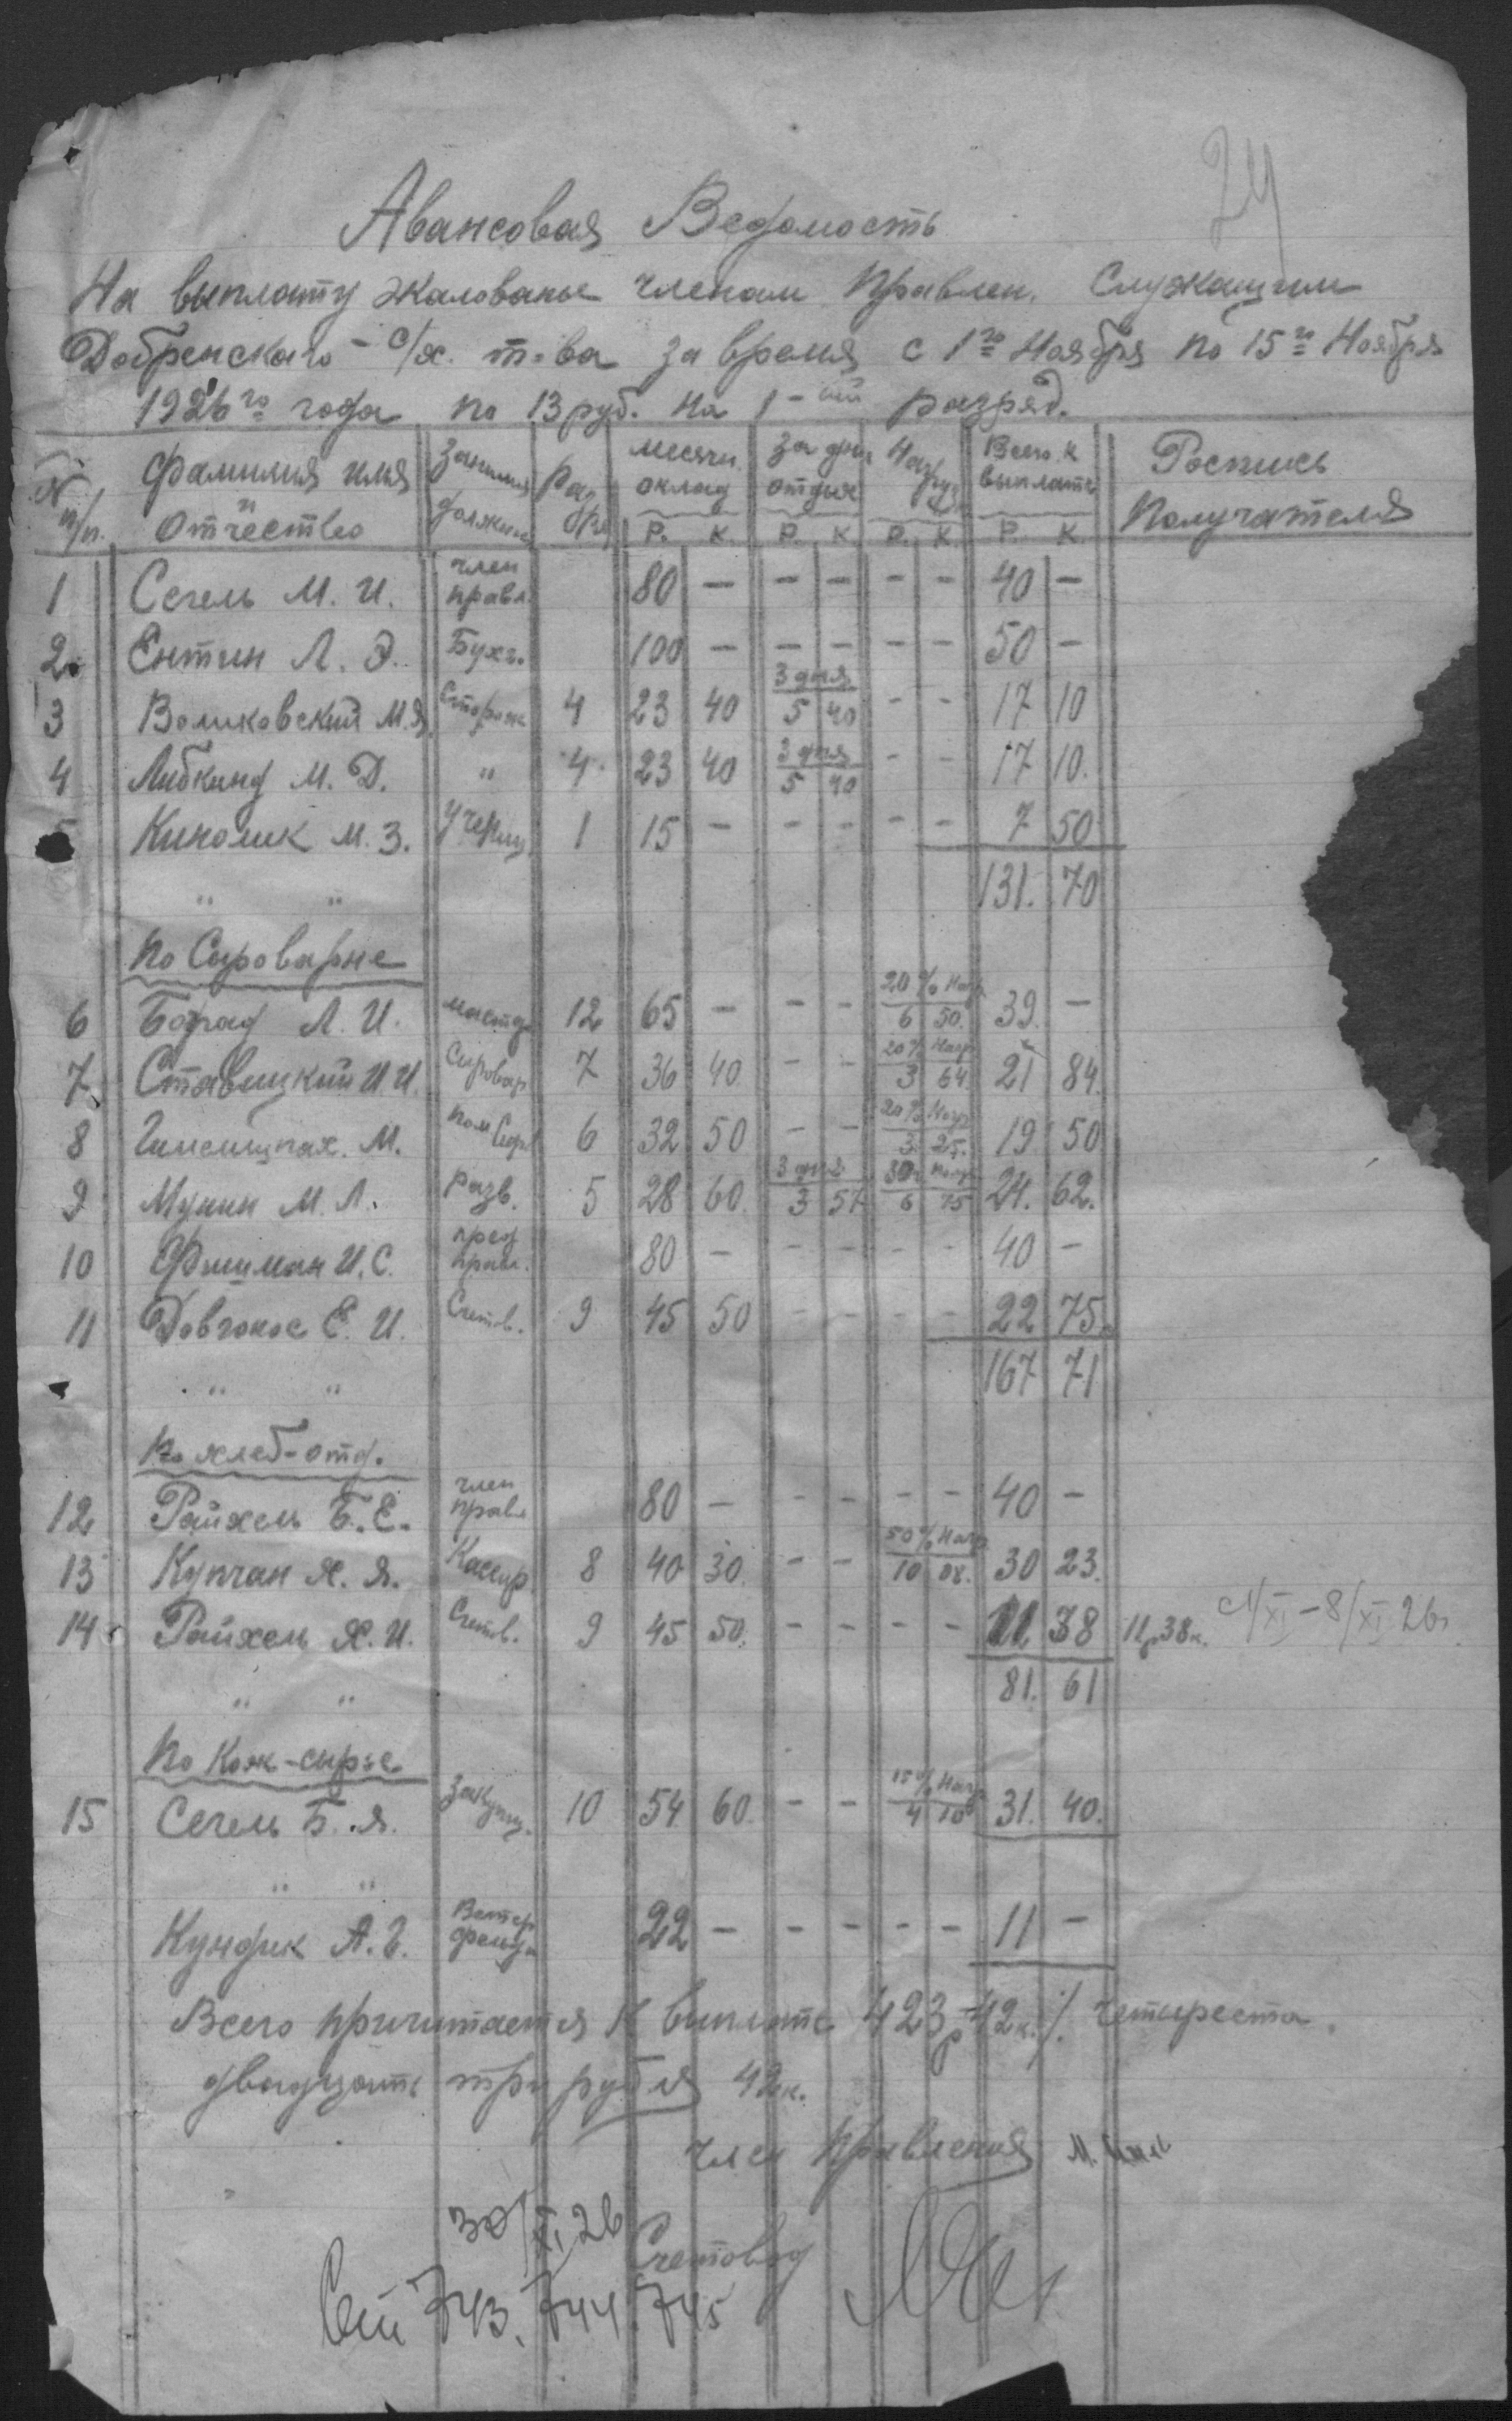 24
Авансовая Ведомость
На выплату жалованье членам Правлен. Служащим
Добренскаго - с/х. т-ва за время с 1го Ноября по 15го Ноября
1926го года по 13 руб. на 1-ый разряд.
№ п/п. Фамилия имя и Отчество Занимая должнос Разря месячн. оклад Р. К. За дни отдыха Р. К. Нагруз Р. К. Всего к выплате Р. К. Роспись Получателя
1 Сегель М. И. член правл. 80 — — — — — 40 —
2. Ентин Л. Э. Бухг. 100 — — — — — 50 —
3 Воликовский М.Я. Сторож 4 23 40 3 дня 5 40 - - 17 10
4 Либкинд М. Д. " 4 23 40 3 дня 5 40 - - 17 10.
5 Кинолик М. З. Учениц 1 15 — - - - - 7 50
131. 70
" "
По Сыроварне
6 Борад Л. И. мастер 12 65 — - - 20% Нагр 6 50. 39. —
7 Ставицкий И. И. Сыровар 7 36 40 - - 20% Нагр 3 64. 21 84.
8 М. пом Сыр 6 32 50 - - 20% Нагр 3. 25. 19. 50
9 Мунин М. Л. разв. 5 28 60. 3 дня 3 57 30% Нагр 6 75 24. 62.
10 Фишман И. С. пред правл. 80 — - - - - 40 —
11 Довгонос Е. И. Счетов. 9 45 50 - - - - 22 75.
167 71
" "
По хлеб-отд.
12 Райхель Б. Е. член правл 80 — - - - - 40 —
13 Купчан Х. Я. Кассир 8 40 30. - - 50% Нагр 10 08. 30 23.
14 Райхель Х. И. Счетов. 9 45 50. - - - - 11 38 11р38к. с 1/XI - 8/XI 26г.
81. 61
" "
По Кож-сырье
15 Сегель Б. Я. Закупщ. 10 54 60. - - 15% Нагр 4 10 31. 40.
" "
Кундик А. Г. Ветер фельдш 22 — - - - - 11 —
Всего причитается к выплате 423р-42к./. четыреста
двадцать три рубля 42к.
член Правления М.
30/XI 26 Счетовод
743. 744. 745